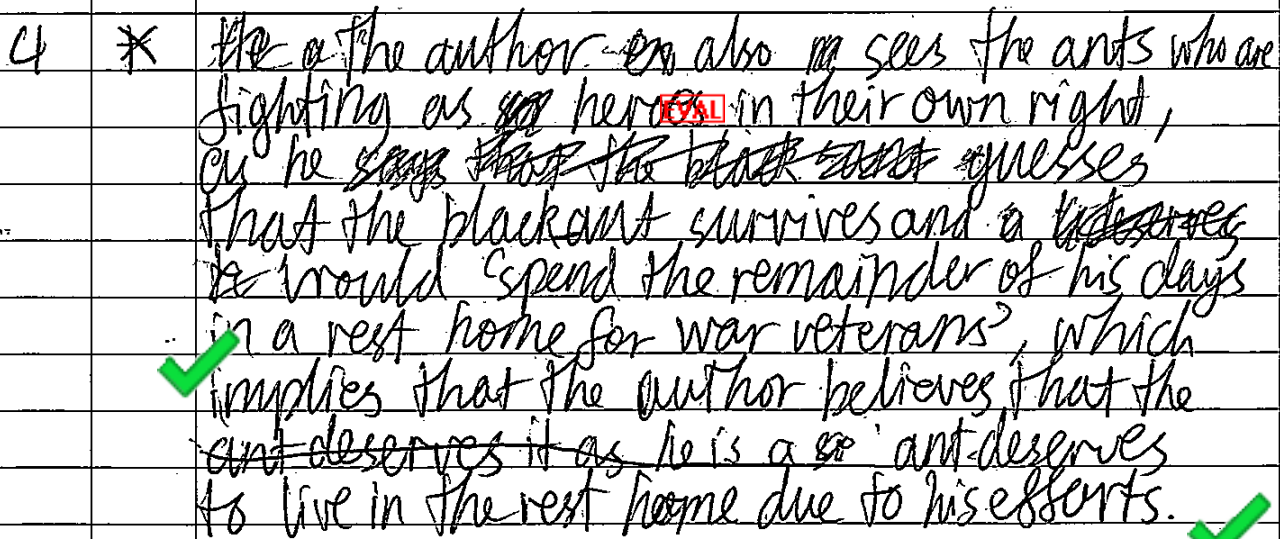 4 * the author also sees the ants who are
fighting as heroes in their own right,
EVAL
as he guesses
that the black ant survives and
would 'spend the remainder of his days
in a rest home for war veterans', which
implies that the author believes that the
ant deserves it as he is a ant deserves
to live in the rest home due to his efforts.